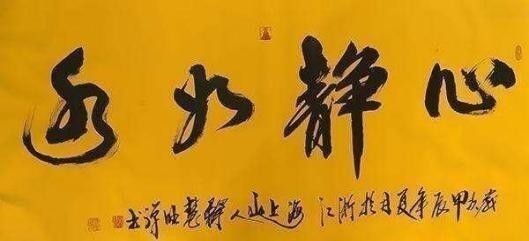 心静如
岁次甲辰年夏月於浙江 海上山人 释慧旺禅书